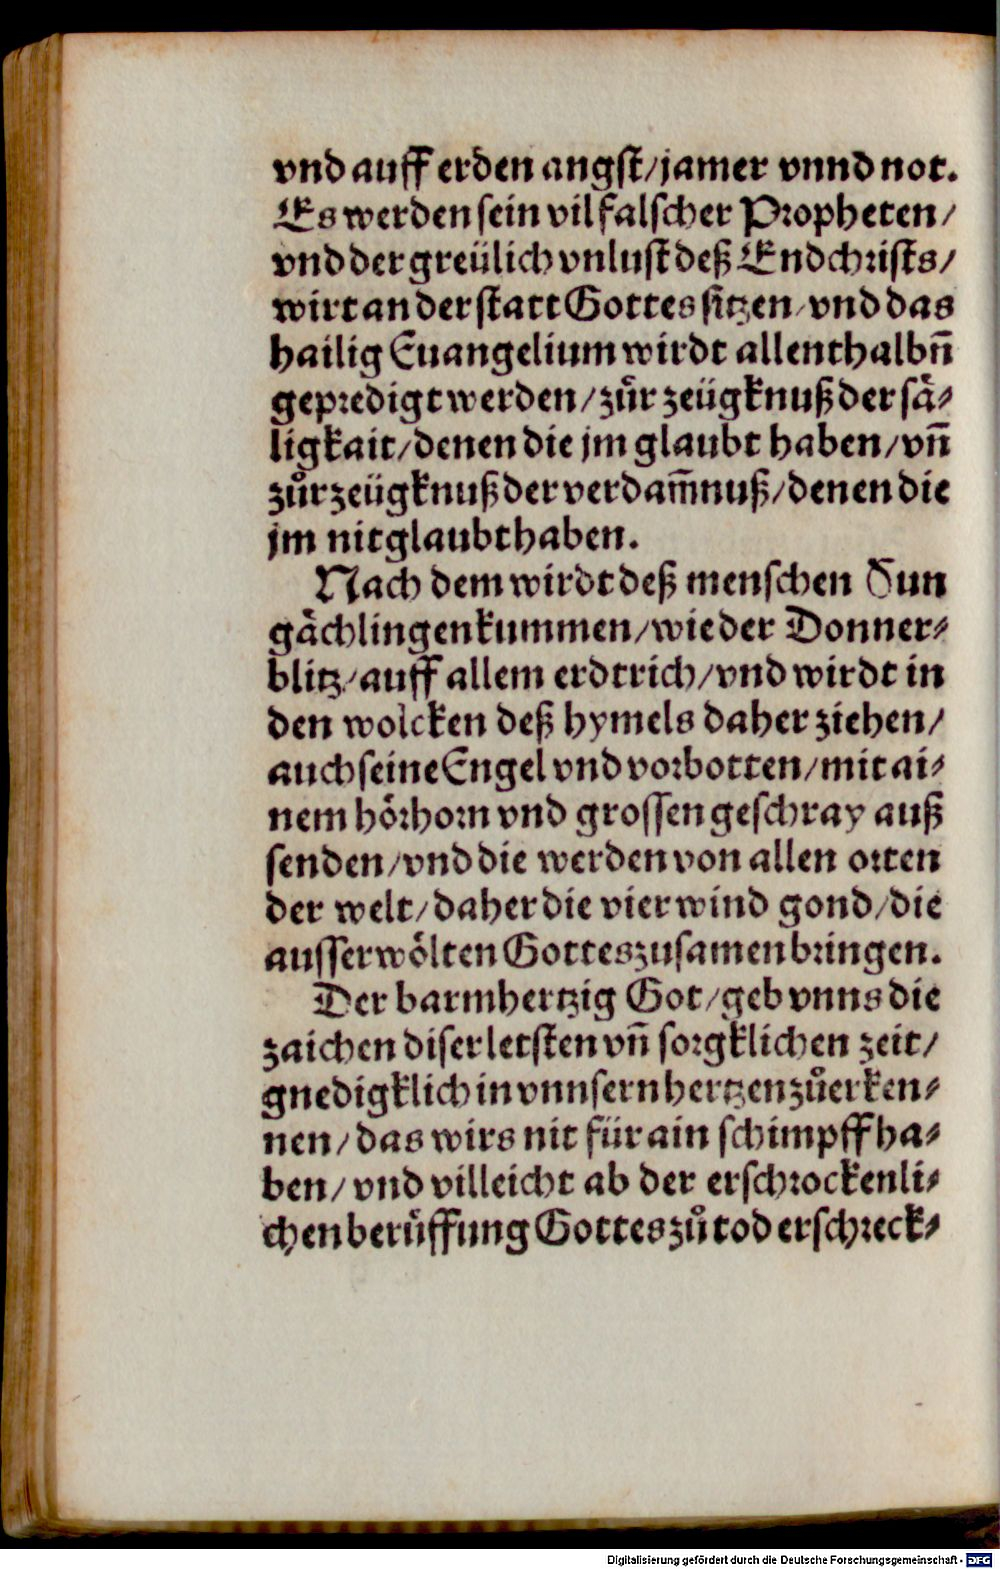 vnd auff erden angst/jamer vnnd not.
Es werden sein vil falscher Propheten/
vnd der greülich vnlust deß Endchrists/
wirt an der statt Gottes sitzen/vnd das
hailig Euangelium wirdt allenthalbn̄
gepredigt werden/zůr zeügknuß der sä⸗
ligkait/denen die jm glaubt haben/vn̄
zůr zeügknuß der verdam̄nuß/denen die
jm nit glaubt haben.
Nach dem wirdt deß menschen Sun
gächlingen kummen/wie der Donner⸗
blitz/auff allem erdtrich/vnd wirdt in
den wolcken deß hymels daher ziehen/
auch seine Engel vnd vorbotten/mit ai⸗
nem hörhorn vnd grossen geschray auß
senden/vnd die werden von allen orten
der welt/daher die vier wind gond/die
ausserwölten Gottes zusamen bringen.
Der barmhertzig Got/geb vnns die
zaichen diser letsten vn̄ sorgklichen zeit/
gnedigklich in vnnsern hertzen zůerken⸗
nen/das wirs nit für ain schimpff ha⸗
ben/vnd villeicht ab der erschrockenli⸗
chen berůffung Gottes zů tod erschreck⸗
Digitalisierung gefördert durch die Deutsche Forschungsgemeinschaft - DFG